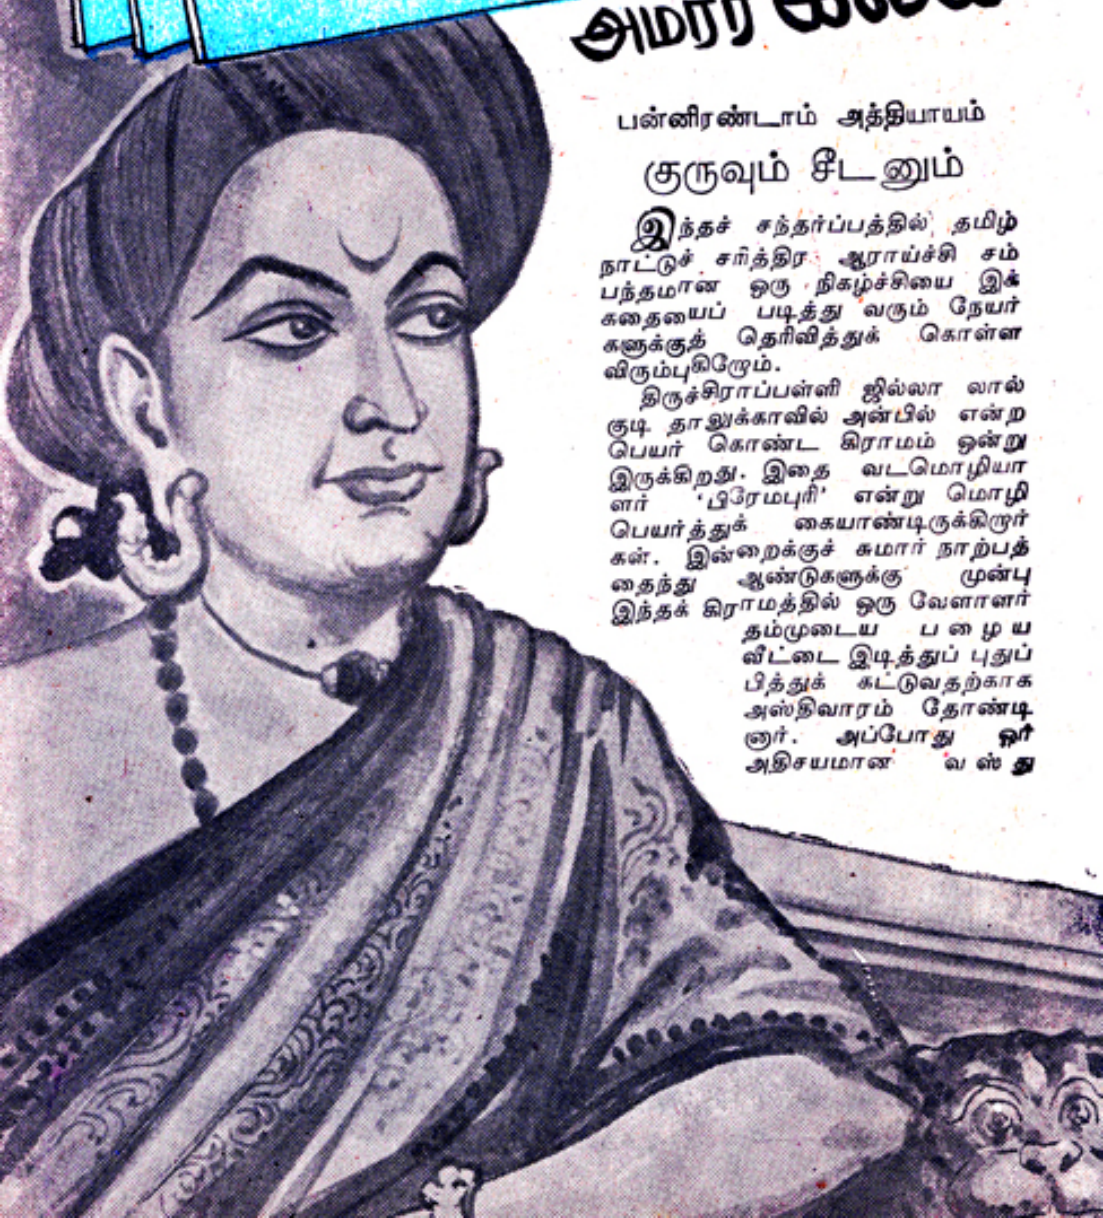 அமரர்
பன்னிரண்டாம் அத்தியாயம்
குருவும் சீடனும்
இந்தச் சந்தர்ப்பத்தில், தமிழ்
நாட்டுச் சரித்திர ஆராய்ச்சி சம்
பந்தமான ஒரு நிகழ்ச்சியை இக்
கதையைப் படித்து வரும் நேயர்
களுக்குத் தெரிவித்துக் கொள்ள
விரும்புகிறோம்.
திருச்சிராப்பள்ளி ஜில்லா லால்
குடி தாலுக்காவில் அன்பில் என்ற
பெயர் கொண்ட கிராமம் ஒன்று
இருக்கிறது. இதை வடமொழியா
ளர் 'பிரேமபுரி' என்று மொழி
பெயர்த்துக் கையாண்டிருக்கிறார்
கள். இன்றைக்குச் சுமார் நாற்பத்
தைந்து ஆண்டுகளுக்கு முன்பு
இந்தக் கிராமத்தில் ஒரு வேளாளர்
தம்முடைய பழைய
வீட்டை இடித்துப் புதுப்
பித்துக் கட்டுவதற்காக
அஸ்திவாரம் தோண்டி
னார். அப்போது ஓர்
அதிசயமான வஸ்து